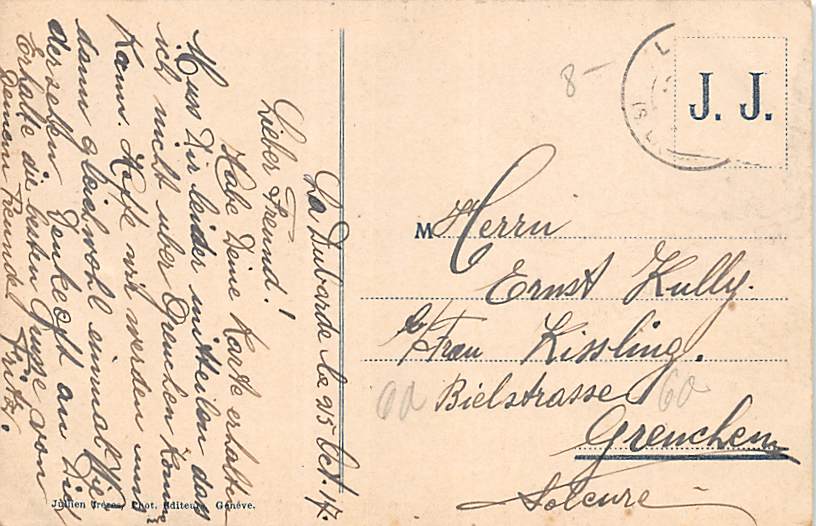 La Dubarde le 25 Oct. 17.
Lieber Freund!
Habe Deine Karte erhalten
Muss Dir leider mitteilen das
ich nicht über Grenchen komme
Kann. Hoffe wir werden uns
dann gleichwohl einmal
derselben Denke oft an Dich
Erhalte die besten Grüsse von
Deinem Freunde Fritz.
Jullien frères, Phot. Editeurs, Genève.
8-
J. J.
M Herrn
Ernst Kully.
c/ Frau Kissling.
60 Bielstrasse 60
Grenchen
Soleure